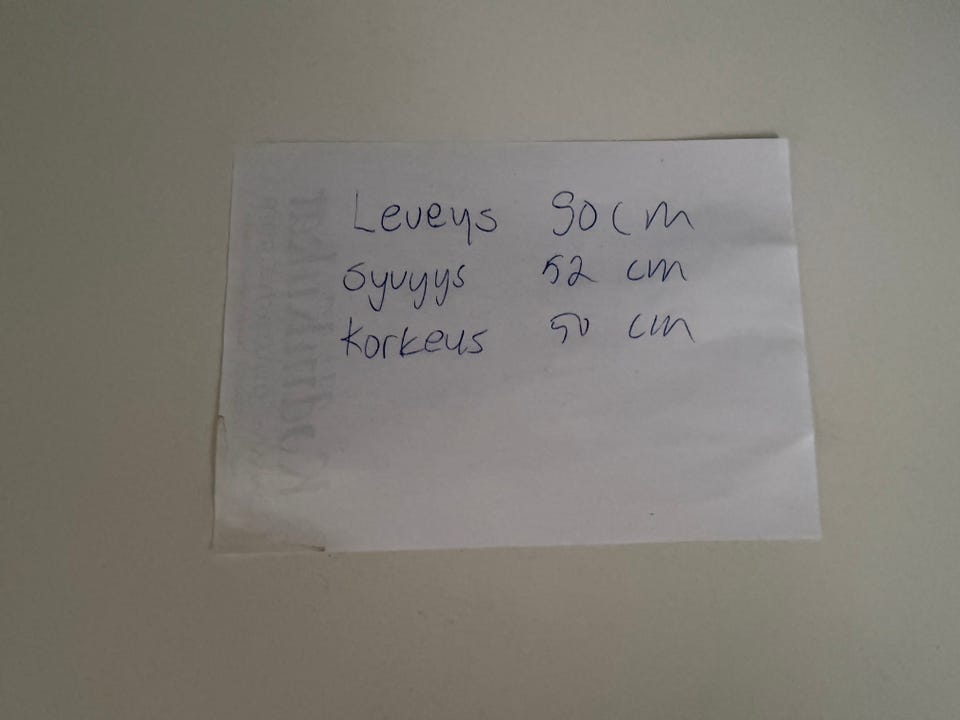 Leveys 90 cm
Syvyys 52 cm
Korkeus 50 cm